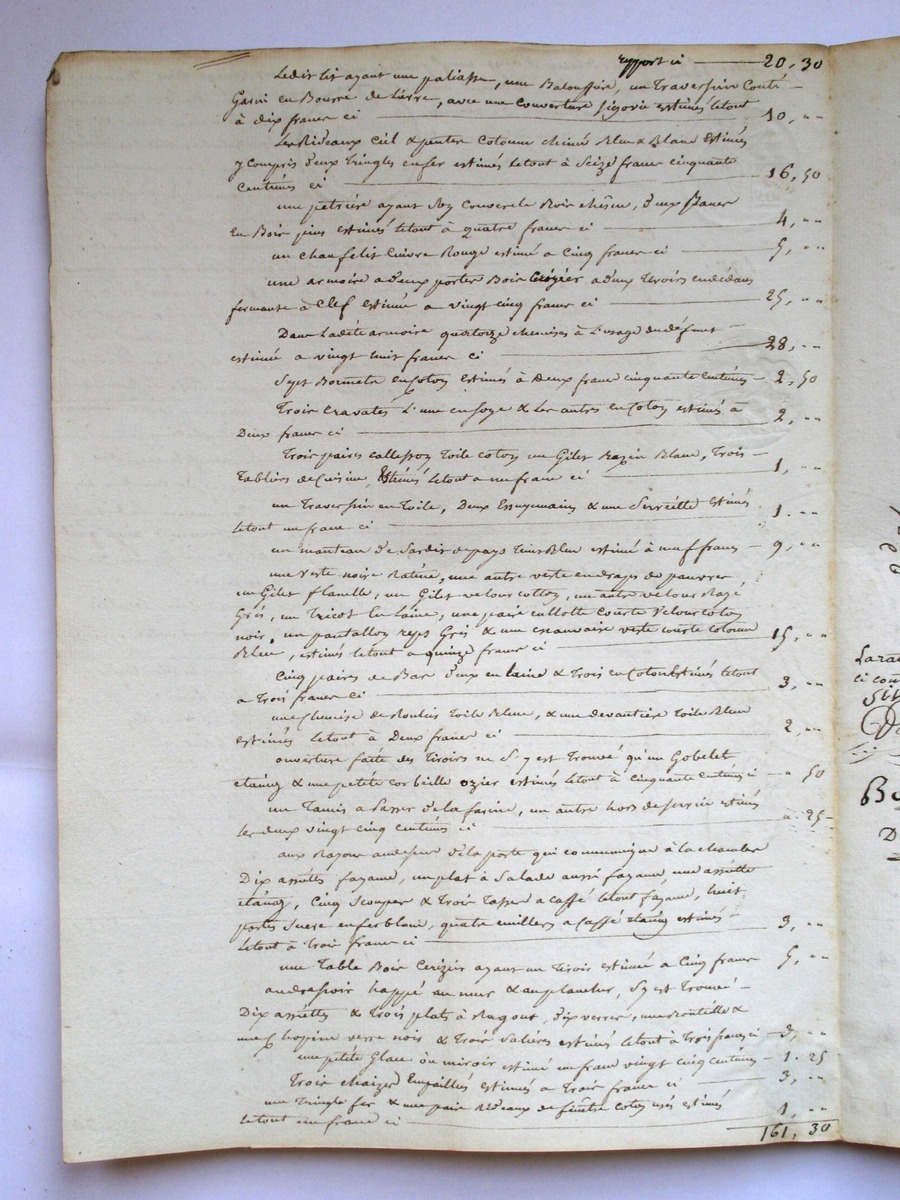 report ci — 20, 30
Ledit lit ayant une paliasse, une Balouffière, un Traversin Conti
Garni en Bourre de Lievre, avec une Couverture estimés letout
à dix francs ci — 10, --
Les Rideaux Ciel & pentes Cotonne chinée Bleu & Blanc Estimés
y Compris deux Tringles en fer estimés letout à Seize francs cinquante
Centimes ci — 16, 50
une petrière ayant son Couvercle Bois chêne, deux
en Bois pins estimés letout à quatre francs ci — 4, --
un chaufelit Cuivre Rouge estimé à Cinq francs ci — 5, --
une armoire a deux portes Bois Cerizier a deux Tiroirs endedans
fermants à Clef estimée a vingt cinq francs ci — 25, --
Dans Ladite armoire quatorze chemises à L'usage du défunt
estimée a vingt huit francs ci — 28, --
Sept Bonnets en Coton Estimés à Deux francs cinquante Centimes — 2, 50
Trois Cravates L'une en Soye & Les autres en Coton estimés à
Deux francs ci — 2, --
Trois paires callesson Toile coton un Gilet Bazin Blanc, Trois
Tabliers de Cuisine, Estimés letout a un franc ci — 1, --
un Traversin en Toile, Deux Essuyemains & une Serviette Estimés
letout un franc ci — 1. --
un manteau de Sardis de pays teint Bleu estimé à neuf francs — 9, --
une Veste noire Ratine, une autre veste en draps de pauvres,
un Gilet flanelle, un Gilet velour cotton, un autre velour Rayé
Gris, un Tricot en Laine, une paire cullotte Courte Velour coton
noir, un pantallon Gris & une mauvaise veste courte cotonne
Bleue, estimés letout a quinze francs ci — 15, --
Cinq paires de Bas deux en laine & Trois en Coton Estimés letout
a Trois francs ci — 3, --
une Chemise de Roulier Toile Bleue, & une devantière Toile Bleue
estimés Letout à Deux francs ci — 2, --
ouverture faite des Tiroirs ne S'y est Trouvé qu'un Gobelet
etaing & une petite corbeille ozier estimés letout à Cinquante Centimes ci — " 50
un Tamis a passer de la farine, un autre hors de service estimés
les deux vingt cinq centimes ci — " 25
aux Rayons audessus de la porte qui communique à la chambre
Dix assiettes fayance, un plat à Salade aussi fayance, une assiette
etaing, Cinq Scoupes & Trois Tasses a caffé letout fayance, huit
portes Sucre en fer blanc, quatre cuillers a Caffé etaing estimés
Letout à Trois francs ci — 3, --
une Table Bois Cerizier ayant un Tiroir estimée a Cinq francs — 5, --
au dressoir happé au mur & au plancher, S'y est Trouvé
Dix assiettes & Trois plats à Ragout, dix verres, une Bouteille &
une chopine verre noir & Trois Salières estimés letout à Trois francs ci — 3, --
une petite Glace ou miroir estimé un franc vingt cinq Centimes — 1. 25
Trois chaizes Empaillées estimées a Trois francs ci — 3, --
une Tringle fer & une paire Rideaux de fenêtre coton usés estimés
letout un franc ci — 1, --
161, 30